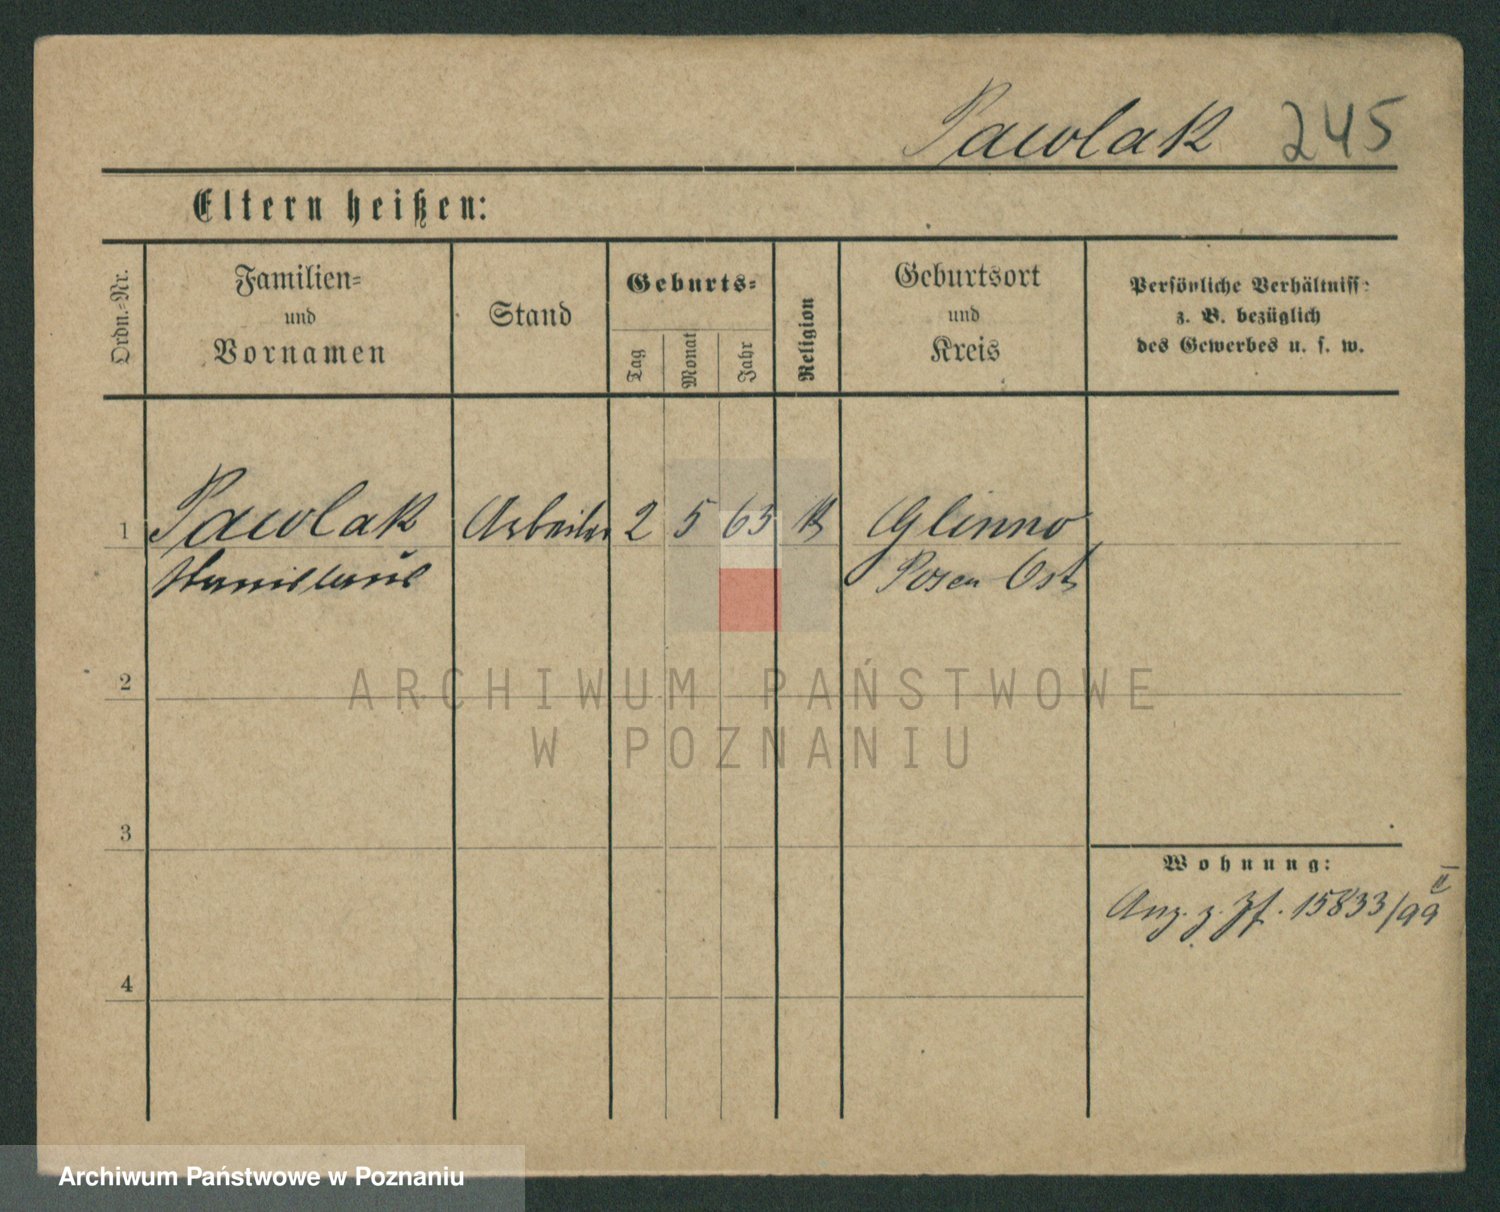 Pawlak 245
Eltern heißen:
Ordn.-Nr.
Familien-
und
Vornamen
Stand
Geburts-
Tag
Monat
Jahr
Religion
Geburtsort
und
Kreis
Persönliche Verhältniss:
z. B. bezüglich
des Gewerbes u. s. w.
1 Pawlak Arbeiter 2 5 63 K Glinno
Stanislaus Posen Ost
2
3
4
Wohnung:
Anz. z. Zf. 15833/99 II
ARCHIWUM PAŃSTWOWE
W POZNANIU
Archiwum Państwowe w Poznaniu